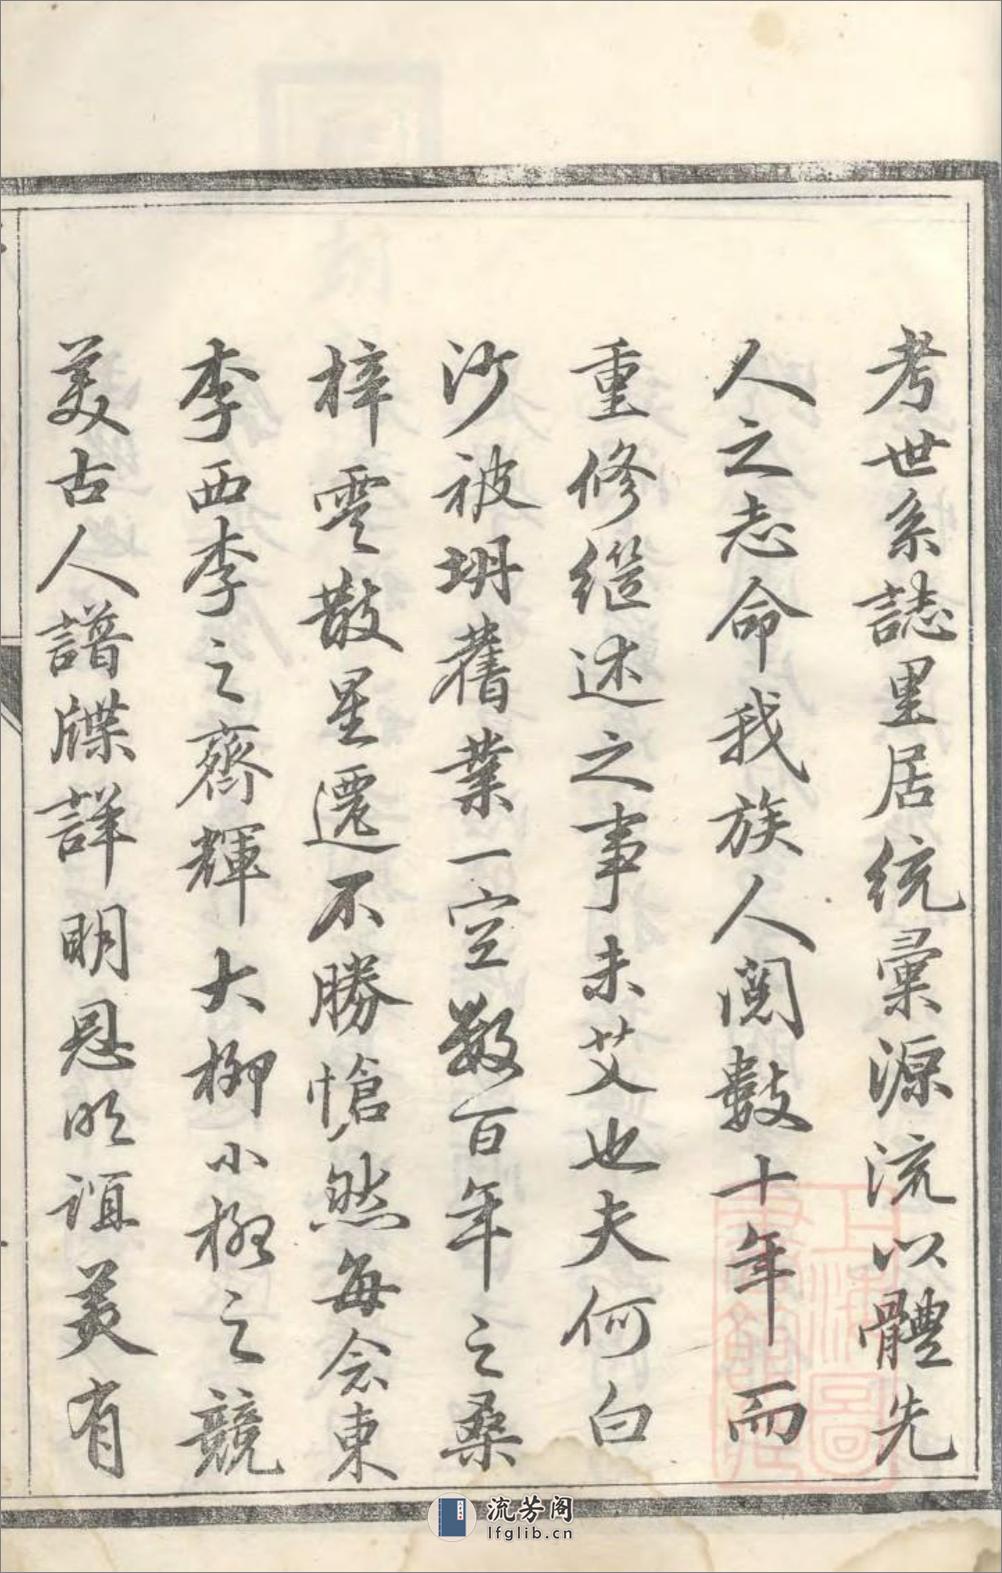 考世系誌里居統彙源流以體先
人之志命我族人閱數十年而
重修繼述之事未艾也夫何白
沙被坍舊業一空数百年之桑
梓雲散星遷不勝愴然每念東
李西李之齊輝大柳小柳之競
美古人譜牒詳明慰以誼美有
上海圖
書館藏
流芳阁
lfglib.cn